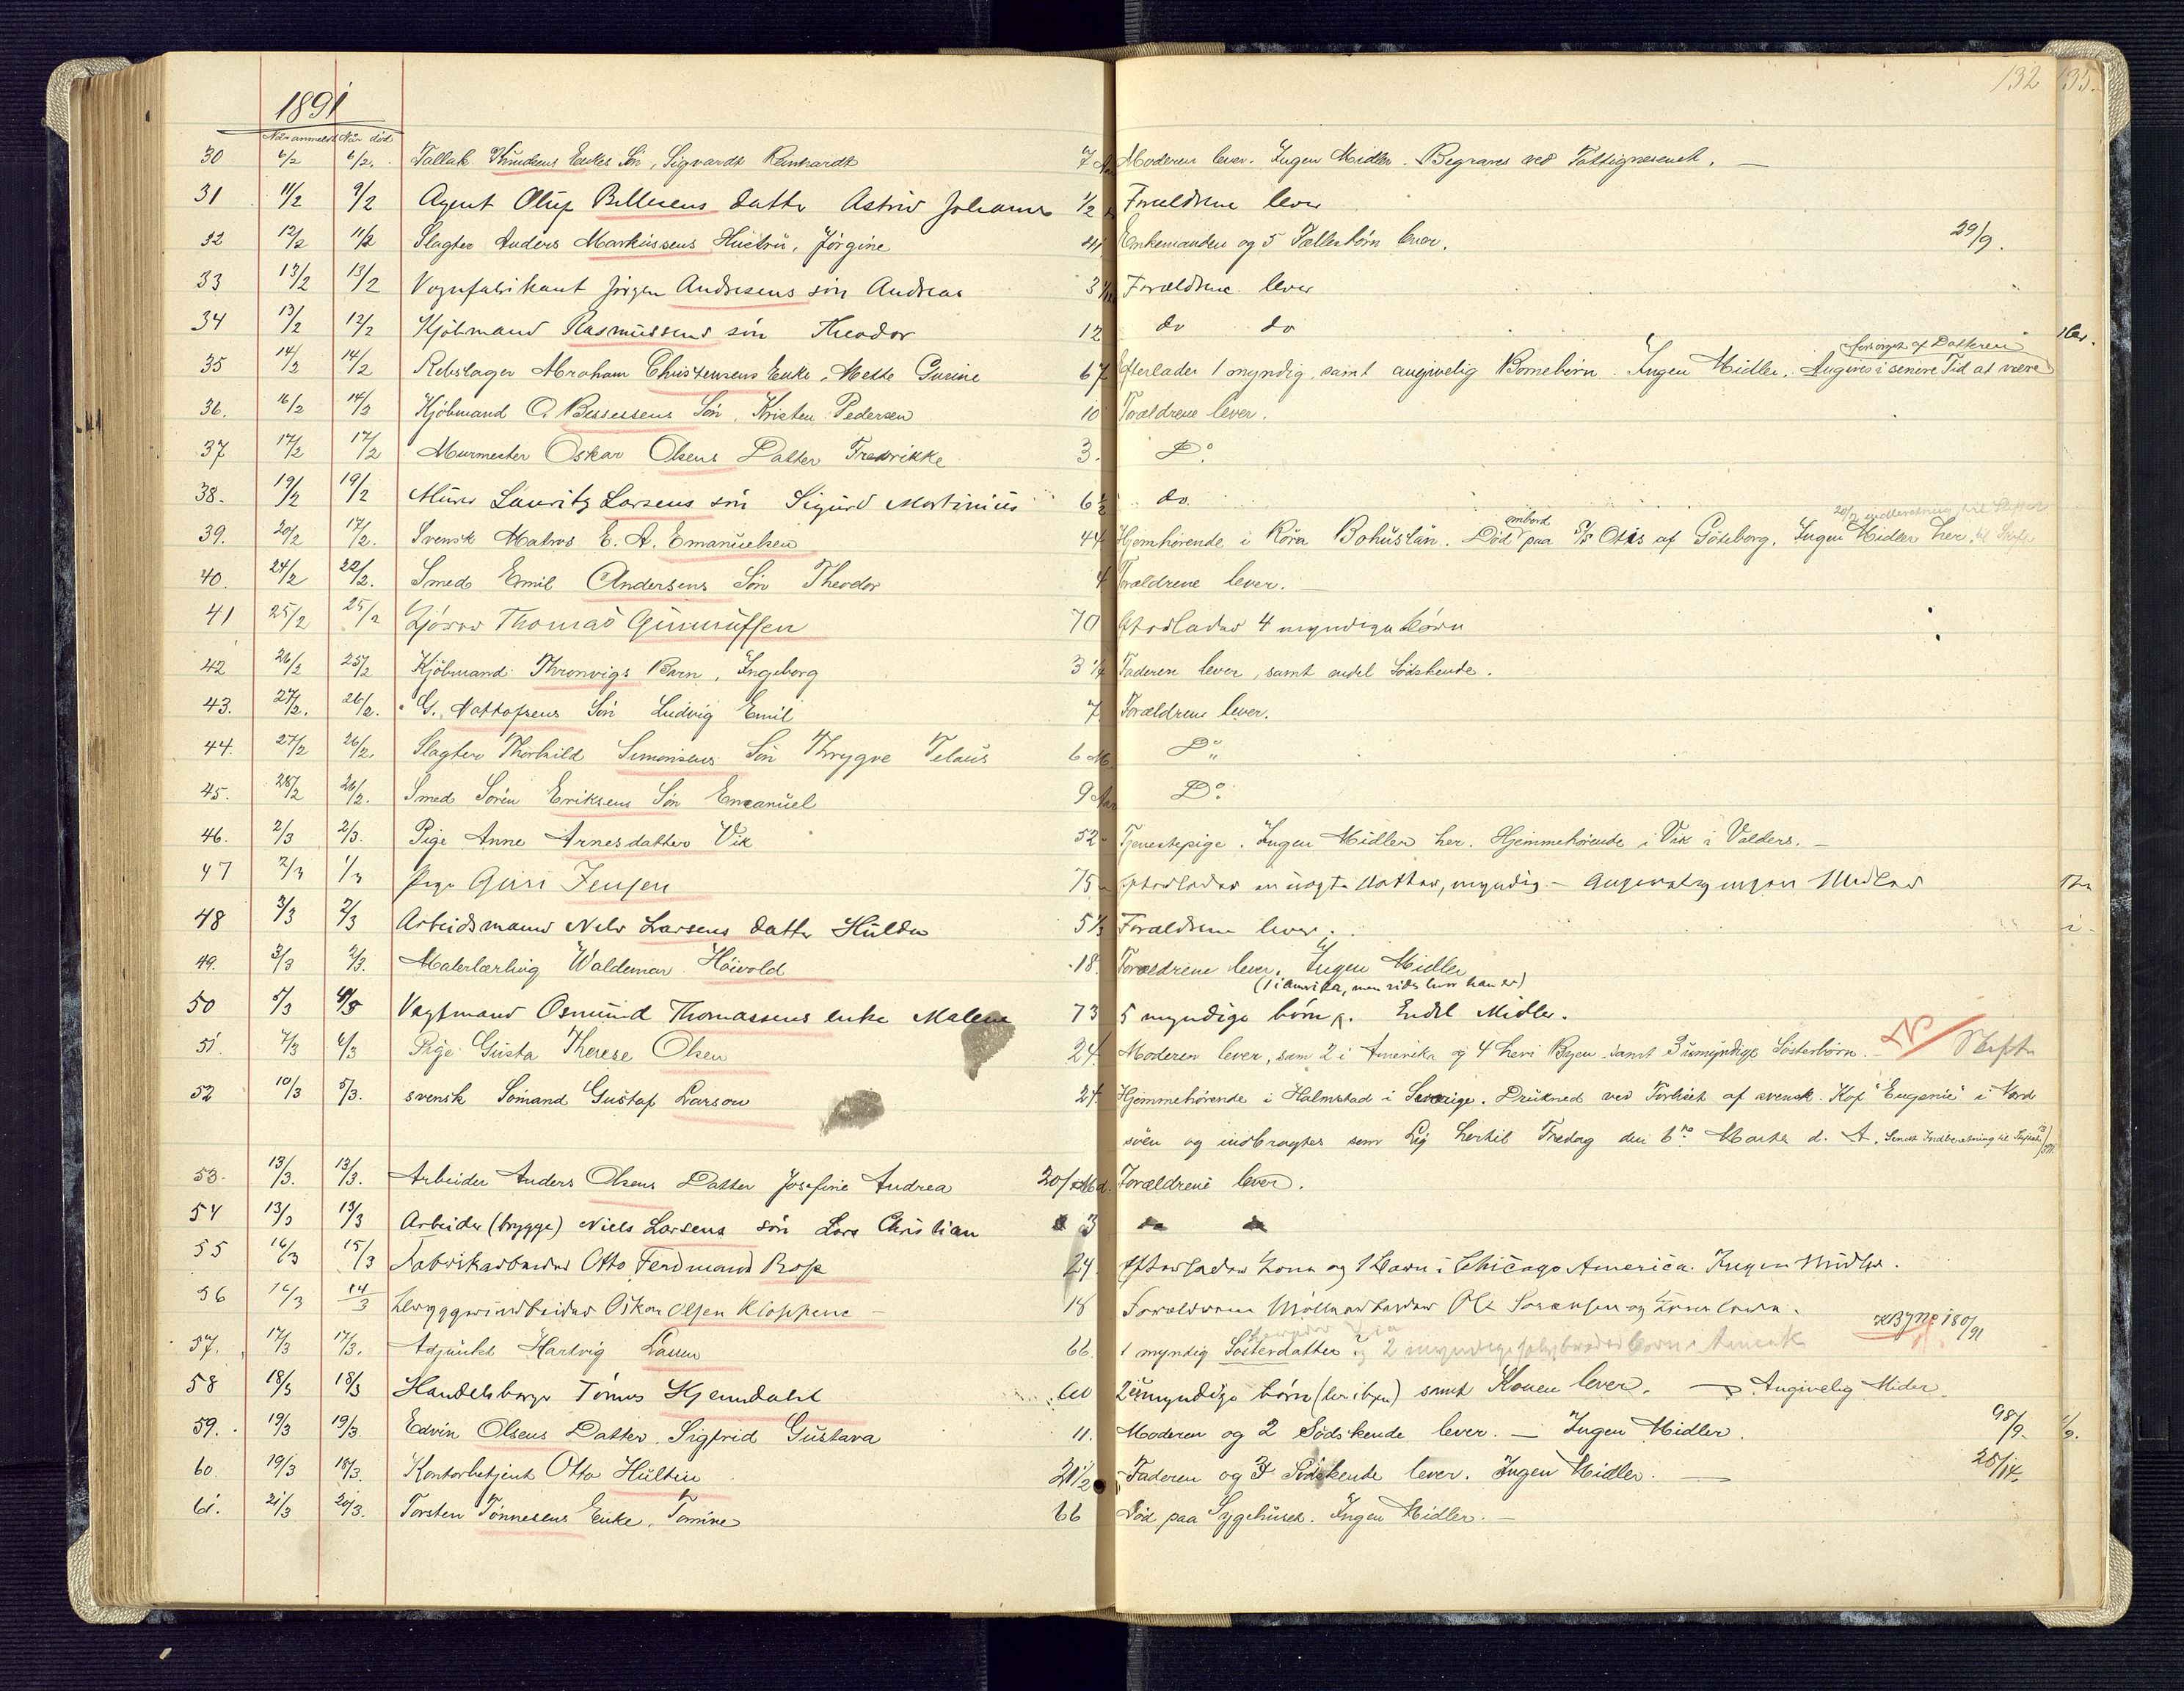 132 135.
1891
Når anmeldt Når død
30 6/2 6/2. Tallak Knudsens Enkes Søn, Sigvardt Reinhardt 7 Moderen lever. Ingen Midler. Begraves ved Fattigvæsenet. —
31 11/2 9/2 Agent Oluf Bellesens datter Astrid Johanne 1/2 Forældrene lever
32 12/2 11/2 Slagter Anders Markussens Hustru, Jørgine 41 Enkemanden og 5 Fællesbørn lever. 29/9.
33 13/2 13/2 Vognfabrikant Jørgen Andresens søn Andreas 3 Forældrene lever
34 13/2 12/2 Kjøbmand Rasmussens søn Theodor 12 do do
forsørget af Datteren
35 14/2 14/2 Rebslager Abraham Christensens Enke, Mette Gurine 67 Efterlader 1 myndig, samt angivelig Børnebørn. Ingen Midler. Angives i senere Tid at være
36. 16/2 14/2 Kjøbmand O. Bessesens Søn, Kristen Pedersen 10 Forældrene lever.
37 17/2 17/2 Murmester Oskar Olsens Datter Fredrikke 3. Do.
38. 19/2 19/2 Murer Lauritz Larsens søn Sigurd Martinius 6 1/2 do.
ombord 20/2 indberetning til Skiftet
39. 20/2 17/2. Svensk Matros E. A. Emanuelsen 44 Hjemhørende i Röra Bohuslän. Død paa S/S Otis af Göteborg. Ingen Midler her.
40. 24/2 22/2. Smed Emil Andersens Søn Theodor 4 Forældrene lever. —
41 25/2 25/2 Thomas Gunnuffsen 70 Efterlader 4 myndige børn
42 26/2 25/2 Kjøbmand Thronvigs Barn, Ingeborg 3 1/4 Faderen lever, samt endel Södskende.
43. 27/2. 26/2. G. Nattofsens Søn Ludvig Emil 7 Forældrene lever.
44. 27/2 26/2. Slagter Thorkild Simonsens Søn Thrygve Telaus 6 M. Do
45. 28/2 26/2. Smed Sören Eriksens Søn Emanuel 9 Aar Do.
46. 2/3 2/3. Pige Anne Arnesdatter Vik 52 Tjenestepige. Ingen Midler her. Hjemmehørende i Vik i Valders. —
47 2/3 1/3 Pige Guri Jensen 75 Efterlader en uægte datter, myndig — angivelig ingen Midler
48 3/3 2/3 Arbeidsmand Nils Larsens datter Hulda 5 1/2 Forældrene lever.
49. 3/3 2/3. Malerlærling Waldemar Höivold 18. Forældrene lever. Ingen Midler
(1 i Amerika, men vides hvor han er)
50 5/3 4/3 Vagtmand Osmund Thomassens enke Malene 73 5 myndige børn. Endel Midler.
51. 7/3 6/3 Pige Gusta Therese Olsen 24 Moderen lever, sam 2 i Amerika og 4 heri Byen samt 3 umyndige Søsterbørn. — Skifte
52 10/3 5/3. svensk Sømand Gustaf Larson 24. Hjemmehørende i Halmstad i Sverige. Druknede ved Forliset af svensk Kof "Eugenie" i Nord
søen og indbragtes som Lig hertil Fredag den 6te Marts d. A. Sendt Indberetning til Skifte
53. 13/3. 13/3. Arbeider Anders Olsens Datter Josefine Andrea Forældrene lever.
54 13/3 13/3 Arbeider (brygge) Niels Larsens søn Lars Christian 3 do do
55 16/3 15/3 Fabrikarbeider Otto Ferdinand Rosp 24. Efterlader kone og 1 barn i Chicago America. Ingen Midler.
56 16/3 14/3 Bryggeriarbeider Oskar Olsen Kloppene — 18 Forældrene Møllearbeider Ole Sørensen og kone lever.
KBJNo 180/91
57. 17/3 17/3. Adjunkt Hartvig Lassen 66. 1 myndig Søsterdatter og 2 myndige halvbroderbørn i Amerik
58 18/3 18/3 Handelsborger Tönnes Hjemdahl 60 2 umyndige børn (her i byen) samt Konen lever. — Angivelig Midler.
59. 19/3 19/3. Edvin Olsens Datter Sigfrid Gustava 11. Moderen og 2 Södskende lever. — Ingen Midler. 98/9.
60 19/3 18/3. Kontorbetjent Otto Hultin 21 1/2 Faderen og 3 Södskende lever. Ingen Midler. — 25/14.
61. 21/3 20/3. Torsten Tönnesens Enke, Tomine 66 Død paa Sygehuset. Ingen Midler. —